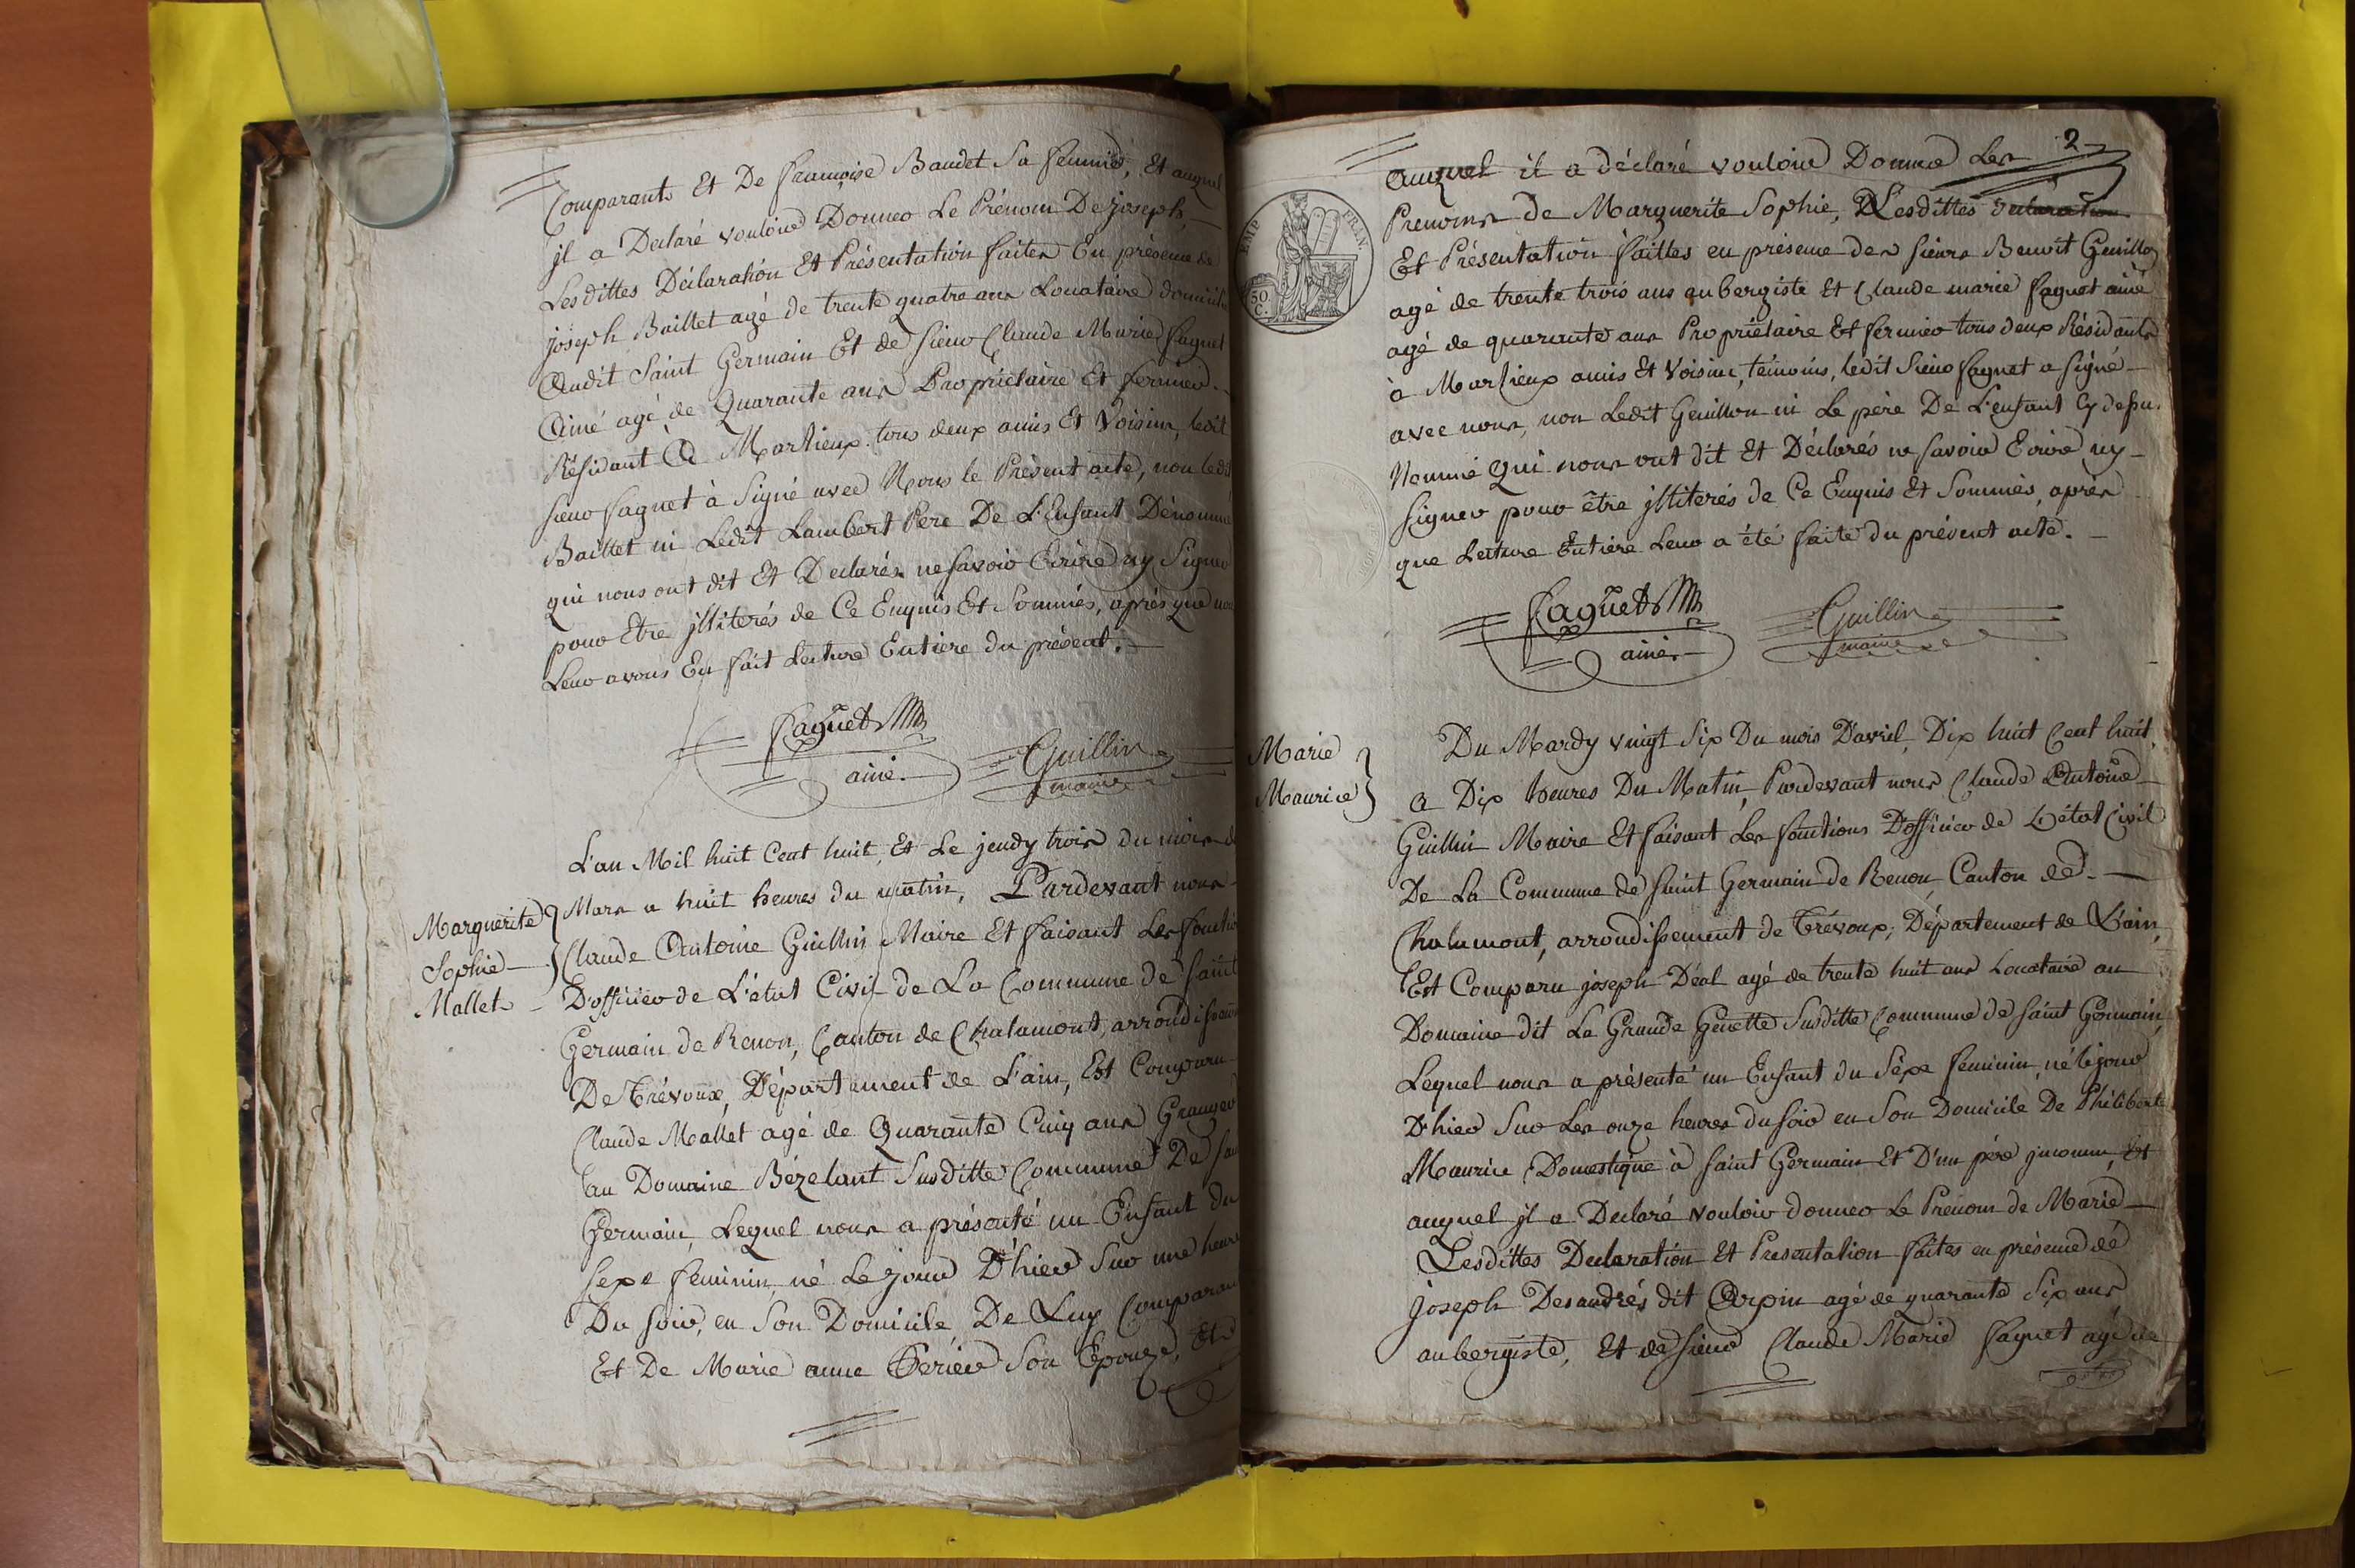 Comparants Et De françoise Baudet Sa femme, Et auquel
jl a Declaré vouloir Donner Le Prénom De joseph,
Lesdittes Déclaration Et Présentation faites En présence de
joseph Baillet agé de trente quatre ans Locataire
Audit Saint Germain Et de sieur Claude Marie faguet
Ainé agé de Quarante ans Propriétaire Et fermier
Résidant A Marlieux tous deux amis Et Voisins, ledit
sieur faguet à Signé avec Nous le Présent acte, non ledit
Baillet ni Ledit Lambert Pere De L'Enfant Dénommé
qui nous ont dit Et Declarés ne savoir Ecrire ny Signer
pour Etre jlliterés de Ce Enquis Et Sommés, après que nous
Leur avons En fait Lecture Entiere du présent.
faguet
ainé.
Guillin
maire
Marguerite
Sophie
Mallet
L'an Mil huit Cent huit, Et Le jeudy trois du mois de
Mars a huit heures du matin, Pardevant nous
Claude Antoine Guillin Maire Et faisant Les
D'officier de L'état Civil de La Commune de Saint
Germain de Renon, Canton de Chalamont, arrondissement
De Trévoux, Département de L'ain, Est Comparu
Claude Mallet agé de Quarante Cinq ans Granger
au Domaine Bézelant Susditte Commune De
Germain, Lequel nous a présenté un Enfant du
sexe feminin, né Le jour D'hier Sur une heure
Du soir, en Son Domicile, De Luy Comparant
Et De Marie anne Son Epouze, Et
2
auquel il a déclaré vouloir Donner Les
Prenoms de Marguerite Sophie, Lesdittes Declaration
Et Présentation faittes en présence des sieurs Benoit Guillon
agé de trente trois ans aubergiste Et Claude marie faguet ainé
agé de quarante ans Propriétaire Et fermier tous deux Résidants
à Marlieux amis Et Voisins, témoins, ledit Sieur faguet a signé
avec nous, non Ledit Guillon ni Le père De L'enfant Cy dessus
Nommé qui nous ont dit Et Déclarés ne savoir Ecrire ny
signer pour être jlliterés de Ce Enquis Et Sommés, après
que Lecture Entière Leur a été faite du présent acte.
faguet
ainé
Guillin
maire
EMP. FRAN.
50
C.
Marie
Maurice
Du Mardy vingt Six Du mois D'avril, Dix huit Cent huit,
a Dix heures Du Matin, Pardevant nous Claude Antoine
Guillin Maire Et faisant Les fonctions D'officier de L'état Civil
De La Commune de saint Germain de Renon, Canton de
Chalamont, arrondissement de Trévoux, Département de L'ain,
Est Comparu joseph Déal agé de trente huit ans Locataire au
Domaine dit La Grande Genette Susditte Commune de saint Germain,
Lequel nous a présenté un Enfant du Séxe feminin, né le jour
D'hier Sur Les onze heures du soir en Son Domicile De Philiberte
Maurice Domestique à saint Germain Et D'un père jnconnu, Et
auquel jl a Declaré vouloir donner Le Prénom de Marie
Lesdittes Declaration Et Presentation faites en présence de
joseph Desandrés dit Arpin agé de quarante Six ans
aubergiste, Et de sieur Claude Marie faguet agé de